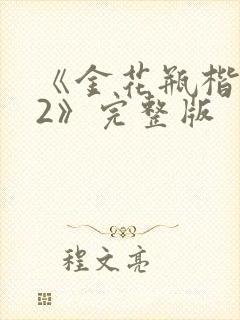 《金花瓶楷
2》完整版
程文亮